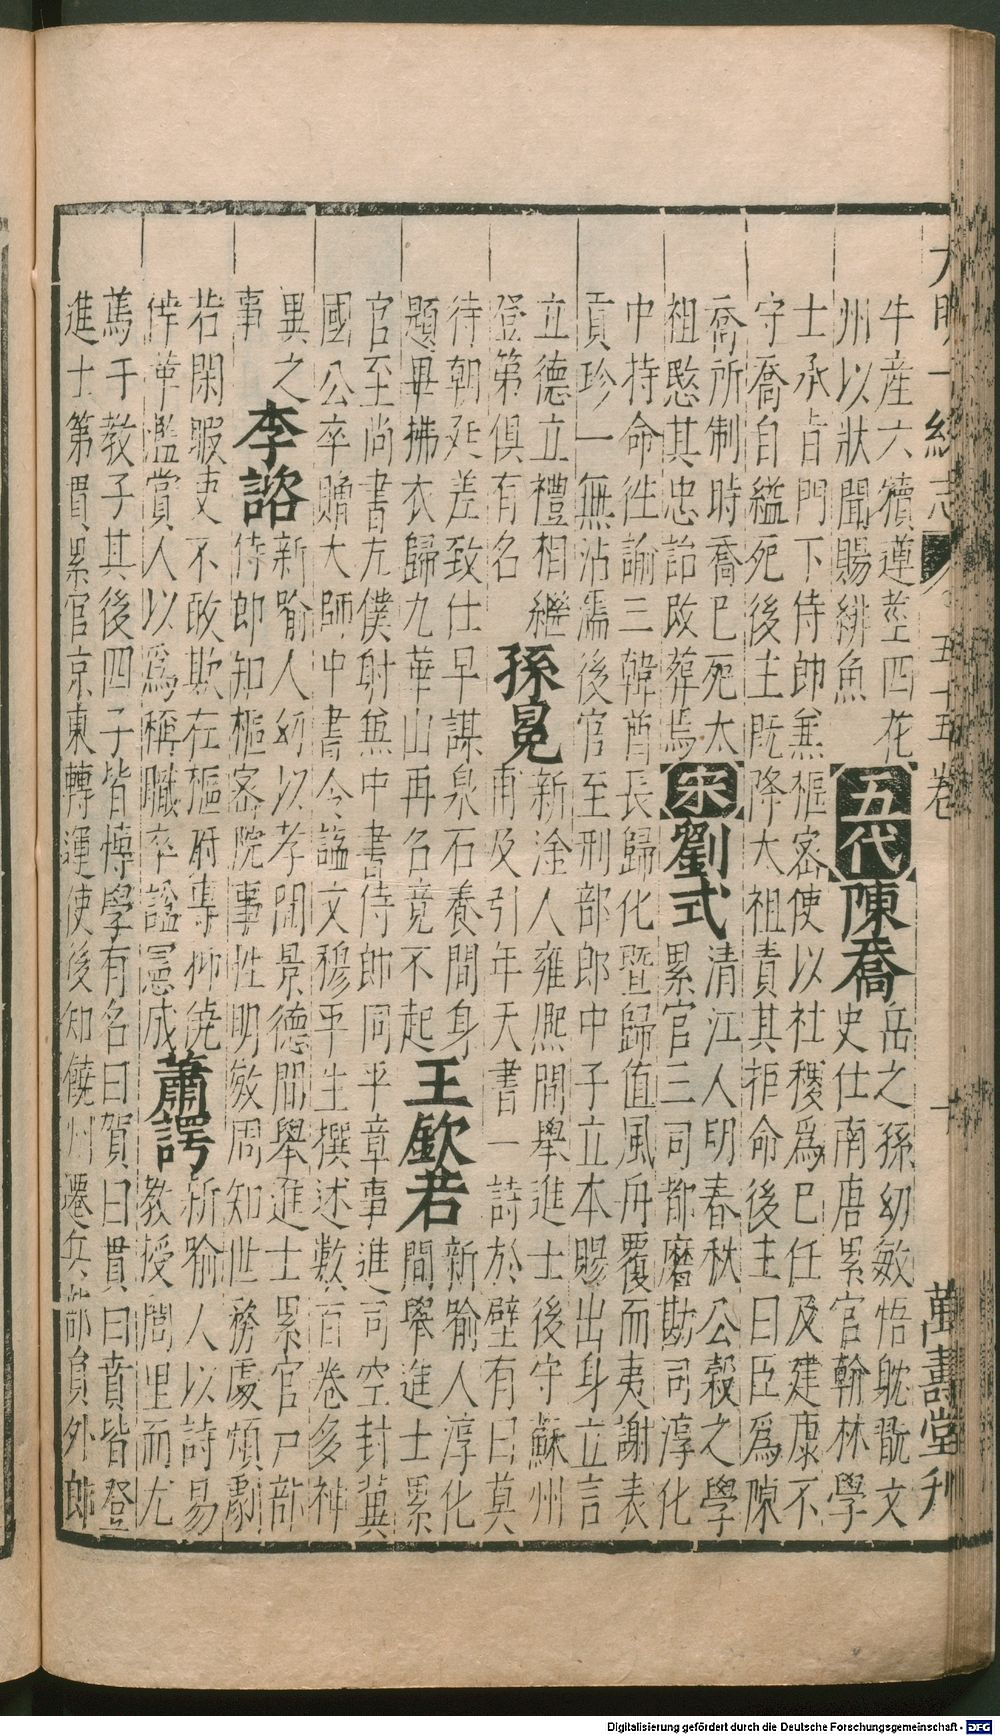 大明一統志 五十五卷 十 萬壽堂刋
牛產六犢蓮莖四花
州以狀聞賜緋魚
五代
陳喬
岳之孫幼敏悟耽翫文
史仕南唐累官翰林學
士承旨門下侍郎兼樞密使以社稷爲巳任及建康不
守喬自縊死後主旣降大祖責其拒命後主曰臣爲陳
喬所制時喬巳死太
祖愍其忠詔改葬焉
宋
劉式
清江人明春秋公穀之學
累官三司都磨勘司淳化
中持命徃諭三韓酋長歸化曁歸值風舟覆而夷謝表
貢珍一無沾濡後官至刑部郎中子立本賜出身立言
立德立禮相繼
登第俱有名
孫冕
新淦人雍熈間舉進士後守蘇州
甫及引年天書一詩於壁有曰莫
待朝廷差致仕早謀泉石養間身
題畢拂衣歸九華山再名竟不起
王欽若
新喻人淳化
間舉進士累
官至尚書左僕射兼中書侍郎同平章事進司空封冀
國公卒贈大師中書令諡文穆平生撰述數百卷多神
異之
事
李諮
新喻人幼以孝聞景德間舉進士累官戸部
侍郎知樞密院事性明敏周知世務處煩劇
若閑暇吏不敢欺在樞府專抑僥
倖革濫賞人以爲稱職卒諡憲成
蕭諤
新喻人以詩易
教授閭里而尤
篤于教子其後四子皆博學有名曰賀曰貫曰賁皆登
進士第貫累官京東轉運使後知饒州遷兵部員外郎
Digitalisierung gefördert durch die Deutsche Forschungsgemeinschaft - DFG